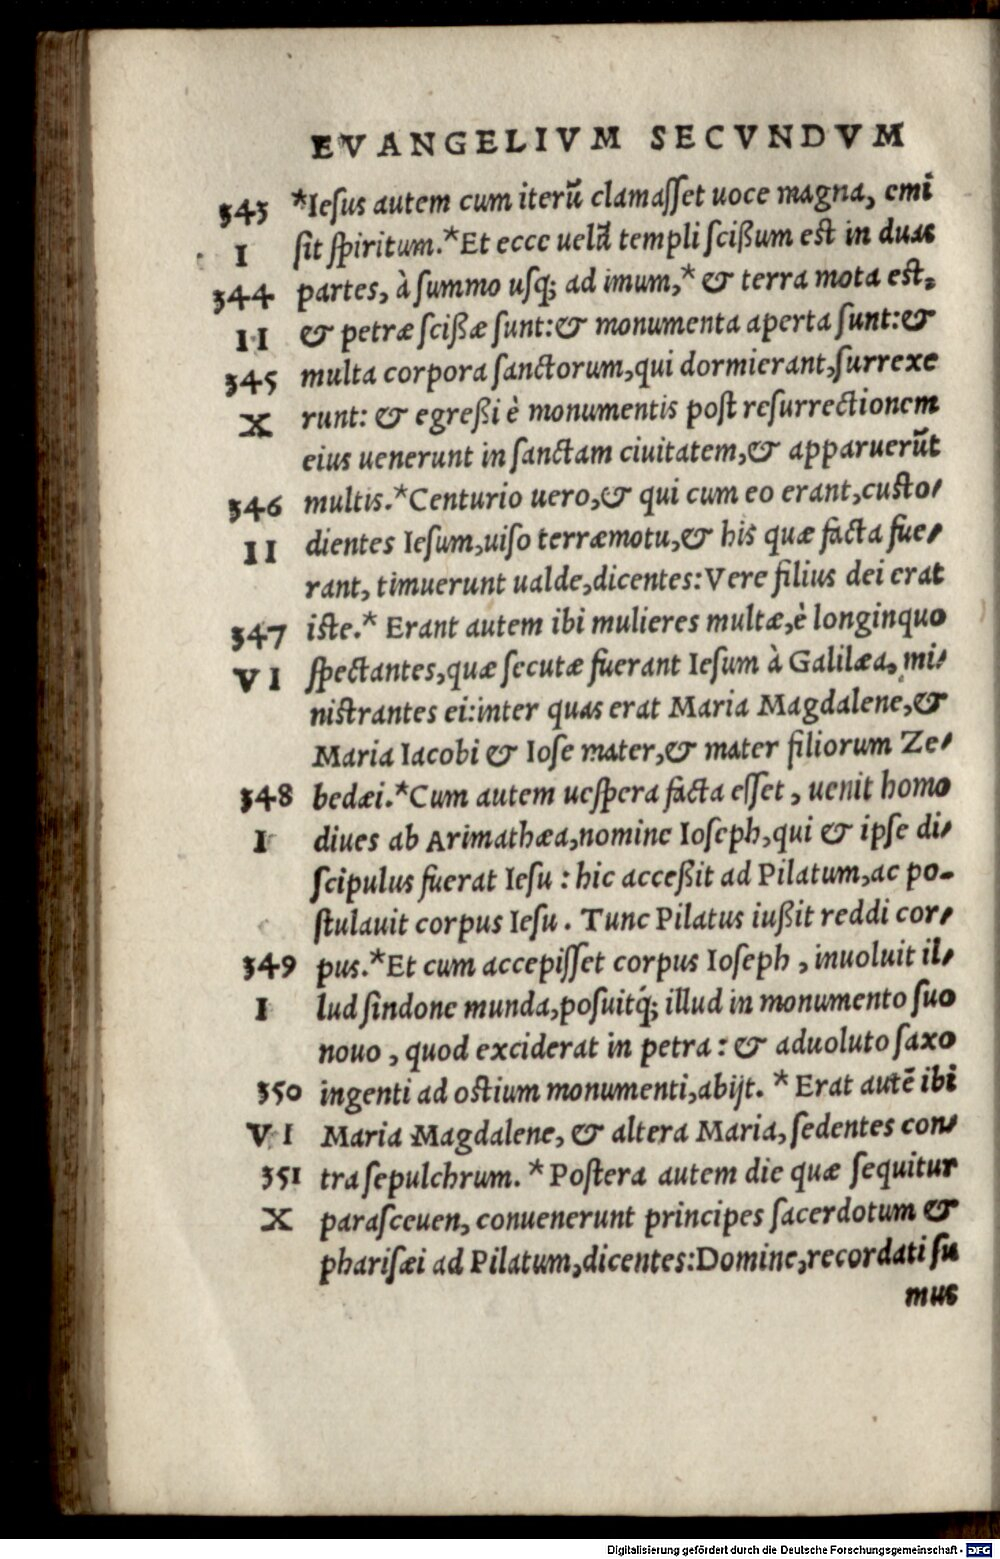 EVANGELIVM SECVNDVM
343 *Iesus autem cum iterũ clamasset uoce magna, emi
I sit spiritum.*Et ecce uelũ templi scißum est in duas
344 partes, à summo usq; ad imum,* & terra mota est.
II & petræ scißæ sunt:& monumenta aperta sunt:&
345 multa corpora sanctorum,qui dormierant,surrexe
X runt: & egreßi è monumentis post resurrectionem
eius uenerunt in sanctam ciuitatem,& apparuerũt
346 multis.*Centurio uero,& qui cum eo erant,custo-
II dientes Iesum,uiso terræmotu,& his quæ facta fue-
rant, timuerunt ualde,dicentes:Vere filius dei erat
347 iste.* Erant autem ibi mulieres multæ,è longinquo
VI spectantes,quæ secutæ fuerant Iesum à Galilæa, mi-
nistrantes ei:inter quas erat Maria Magdalene,&
Maria Iacobi & Iose mater,& mater filiorum Ze-
348 bedæi.*Cum autem uespera facta esset, uenit homo
I diues ab Arimathæa,nomine Ioseph,qui & ipse di-
scipulus fuerat Iesu : hic acceßit ad Pilatum,ac po-
stulauit corpus Iesu. Tunc Pilatus iußit reddi cor-
349 pus.*Et cum accepisset corpus Ioseph , inuoluit il-
I lud sindone munda,posuitq́; illud in monumento suo
nouo , quod exciderat in petra : & aduoluto saxo
350 ingenti ad ostium monumenti,abijt. * Erat autẽ ibi
VI Maria Magdalene, & altera Maria, sedentes con-
351 tra sepulchrum. * Postera autem die quæ sequitur
X parasceuen, conuenerunt principes sacerdotum &
pharisæi ad Pilatum,dicentes:Domine,recordati su
mus
Digitalisierung gefördert durch die Deutsche Forschungsgemeinschaft - DFG